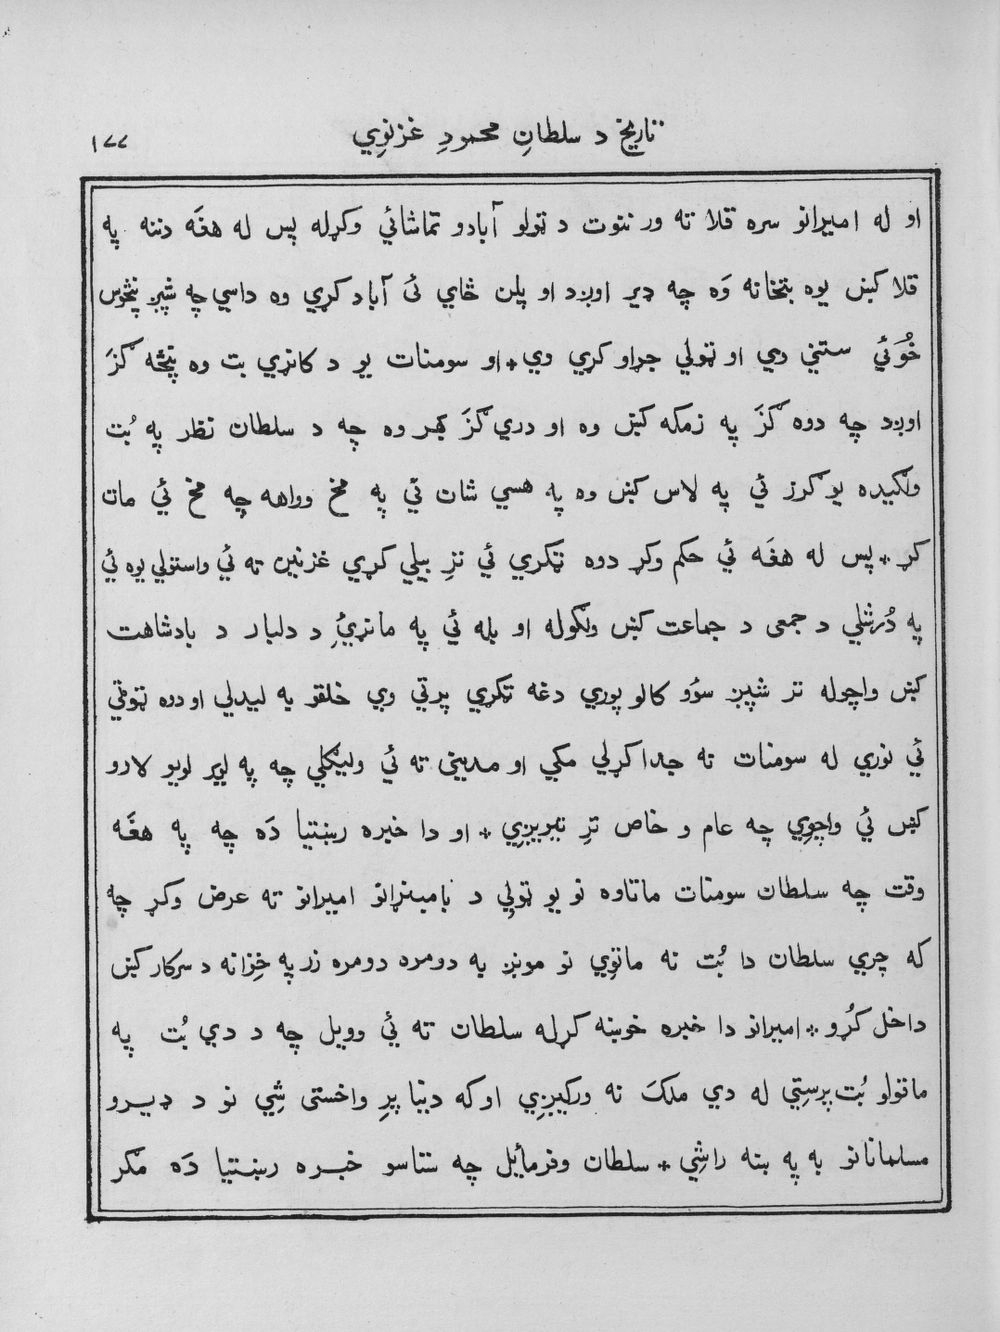 تاریخ د سلطانِ محمودِ غزنوِي
١٧٧
او له اميرانو سره قلا ته ور ننوت د ټولو آبادو تماشائي وکړله پس له هغَه دننه په
قلا کښ يوه بتخانه وَه چه ډير اوږد او پلن ځاي ئ آباد کړي وه داسي چه شپږ پنځوس
خُوَئي ستني وي او ټولي جړاو کړي وي * او سومنات يو د کانړي بت وه پنځه ګزَ
اوږد چه دوه ګزَ په زمکه کښ وه او دري ګزَ بهر وه چه د سلطان نظر په بُت
ولګيده يو ګرز ئي په لاس کښ وه په هسي شان ئي په مخ وواهه چه مخ ئي مات
کړ * پس له هغَه ئي حکم وکړ دوه ټکري ئي ترِ بيلي کړي غزنين ته ئي واستولي يوه ئي
په دُرشلي د جمعي د جماعت کښ ولګوله او بله ئي په مانړئِ د دلبار د بادشاهت
کښ واچوله تر شپږ سوُو کالو پوري دغه ټکري پرتي وي خلقو به ليدلي او دوه ټوټي
ئي نوري له سومنات نه جدا کړلي مکي او مديني ته ئي وليګلي چه په لويو لويو لارو
کښ ئي واچوِي چه عام و خاص ترِ تيريږِي * او دا خبره رښتيا دَه چه په هغَه
وقت چه سلطان سومنات ماتاوه نو يو ټولِي د بامينړانو اميرانو ته عرض وکړ چه
که چري سلطان دا بُت نه ماتوِي نو موږ به دومره دومره زر په خِزانه د سرکار کښ
داخل کړُو * اميرانو دا خبره خوښه کړله سلطان ته ئي وويل چه د دي بُت په
ماتولو بُت پرستِي له دي ملک نه ورکيږِي او که دنيا پرِ واخستي شِي نو د ډيرو
مسلمانانو به په ښه راشِي * سلطان وفرمائيل چه ستاسو خبره رښتيا دَه مګر